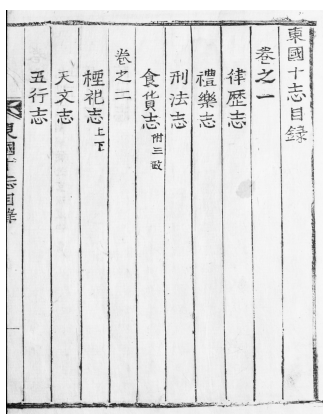 東國十志目錄
卷之一
律歷志
禮樂志
刑法志
食貨志 附三政
卷之二
禋祀志 上下
天文志
五行志
東國十志目錄